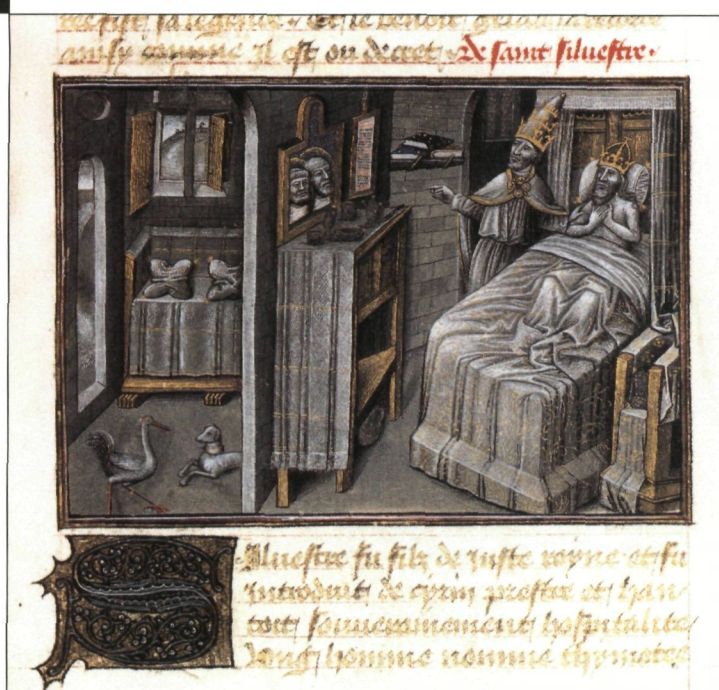 ainsy comme il est ou decret. De saint siluestre.
Siluestre fu filz de iuste royne et fu
introduit de cyrin prestre et han
toit souuerainement hospitalite
homme nomme thymotee